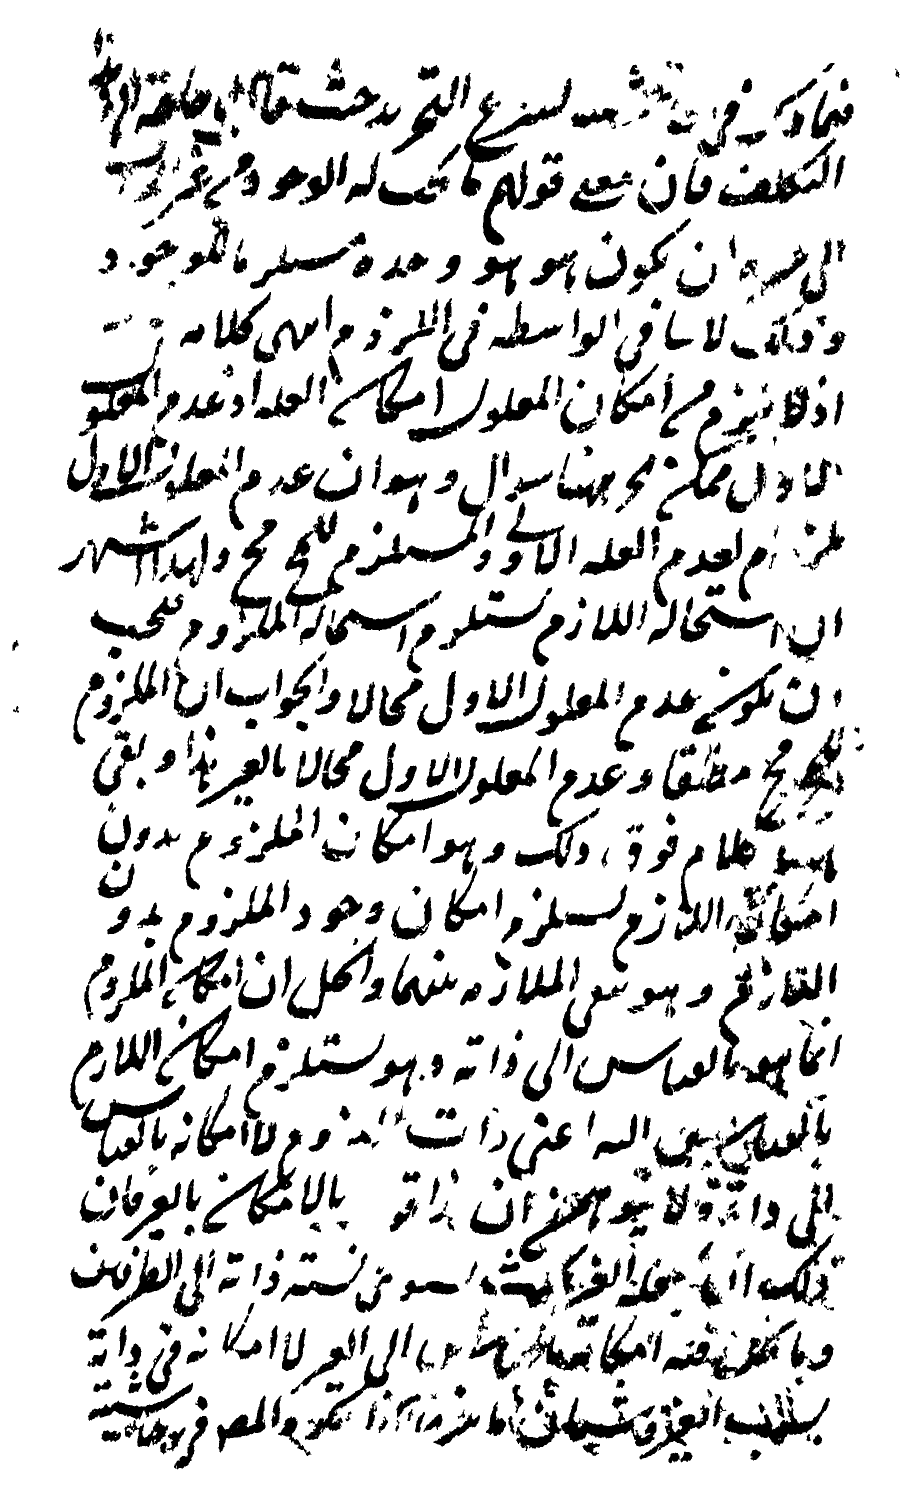 فيما ذكر في لشرح التجريد حيث قال لا حاجة الى
التكلف فان معنى قولهم ما يجب له الوجود من غير
الى غيره ان يكون هو هو وحده مستلزما للوجود
وذلك لا ينافي الواسطة في اللزوم انتهى كلامه
اذ لا يلزم من امكان المعلول امكان العلة اذ عدم المعلول
الاول ممكن ثم ههنا سوال وهو ان عدم المعلول الاول
ملزوم لعدم العلة الاولى والمستلزم للمح مح ولهذا اشتهر
ان استحالة اللازم يستلزم استحالة الملزوم فيجب
ان يكون عدم المعلول الاول محالا والجواب ان الملزوم
للمح مح مطلقا وعدم المعلول الاول محالا بالغير هذا وبقي
ههنا كلام فوق ذلك وهو امكان الملزوم بدون
امكان اللازم يستلزم امكان وجود الملزوم بدون
اللازم وهو ينفي الملازمة بينهما والحل ان امكان الملزوم
انما هو بالقياس الى ذاته وهو يستلزم امكان اللازم
بالقياس اليه اعني ذات الملزوم لا امكانه بالقياس
الى ذاته ولا يتوهمن ان هذا قول بالامكان بالغير فان
ذلك انما بجعله الغير بحيث يستوي نسبة ذاته الى الطرفين
وما نحن فيه امكانه بالقياس الى الغير لا امكانه في ذاته
بسبب الغير وشتان ما بينهما كذا ذكره المص في حاشية